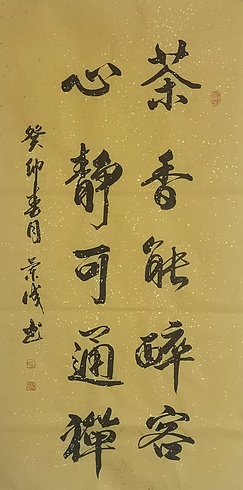 茶香能醉客
心靜可通禪
癸卯春月景成書